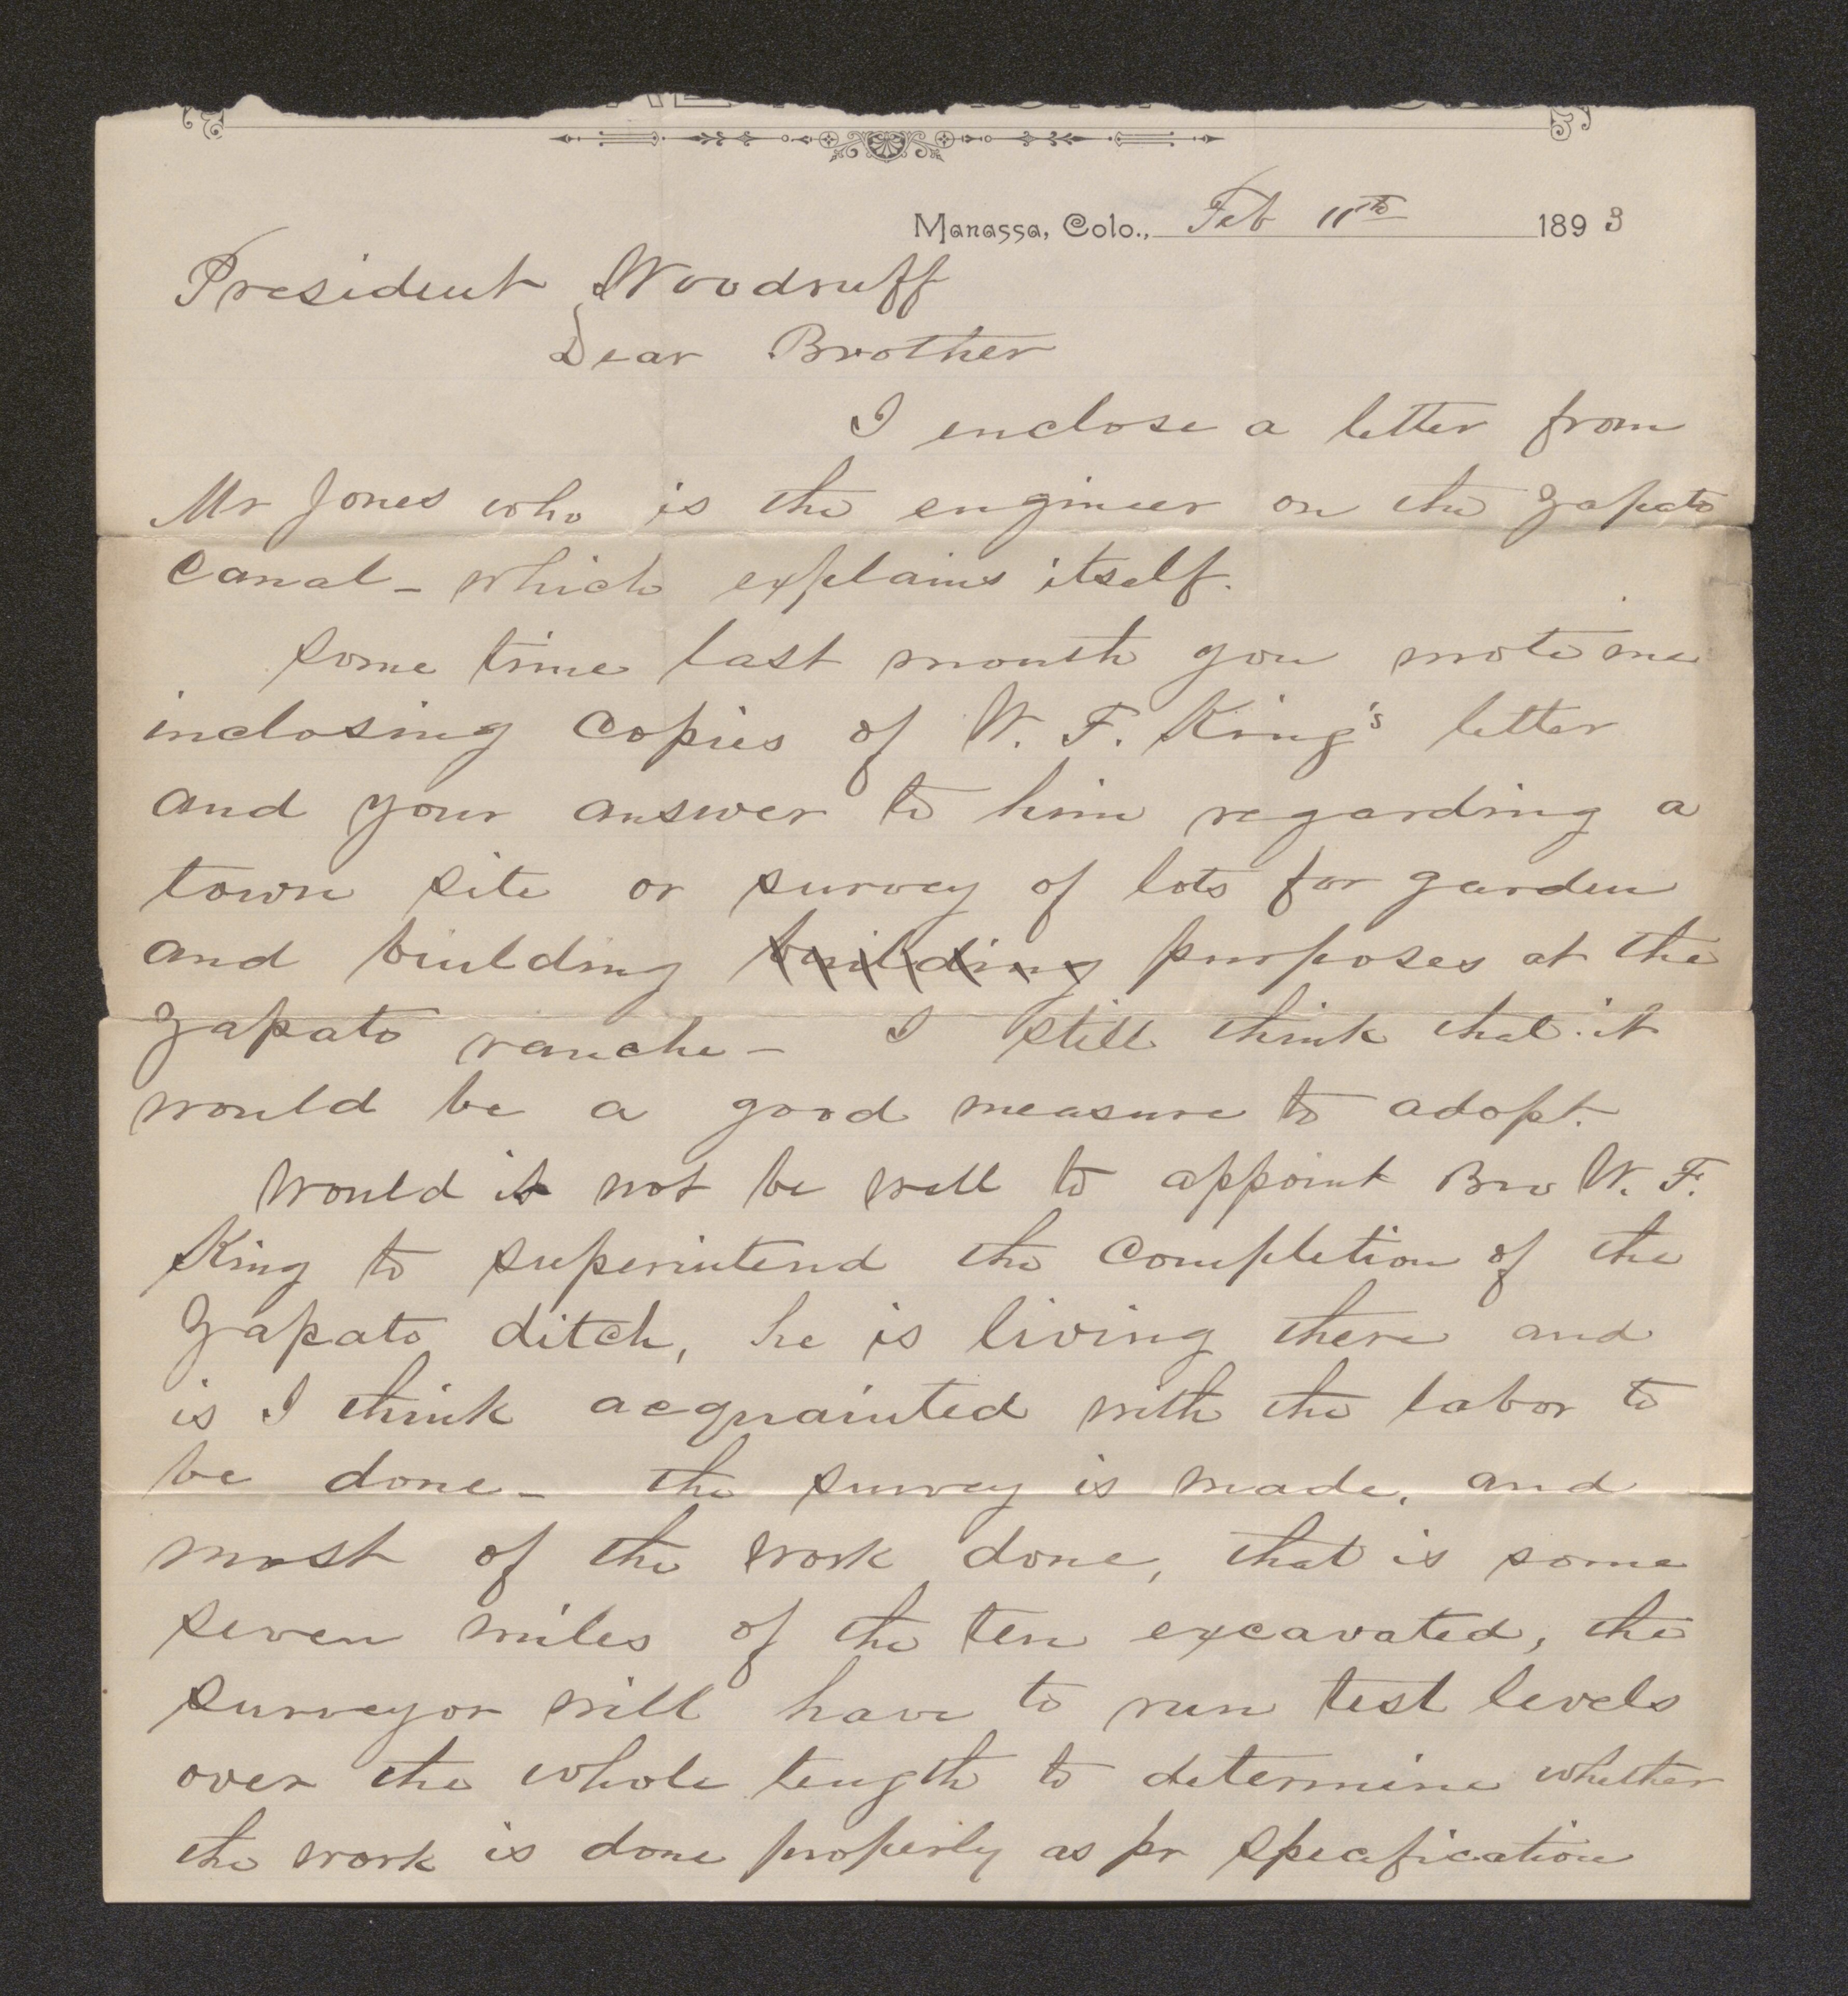 Manassa, Colo., Feb 11th 1893
President Woodruff
Dear Brother
I enclose a letter from
Mr Jones who is the engineer on the Zapato
Canal - which explains itself.
some time last month you wrote me
inclosing copies of W. F. King's letter
and your answer to him regarding a
town site or survey of lots for garden
and building building purposes at the
Zapato ranche - I still think that it
would be a good measure to adopt.
Would it not be well to appoint Bro W. F.
King to superintend the completion of the
Zapato ditch, he is living there and
is I think acquainted with the labor to
be done - the survey is made, and
most of the work done, that is some
seven miles of the ten excavated, the
surveyor will have to run test levels
over the whole length to determine whether
the work is done properly as pr specification